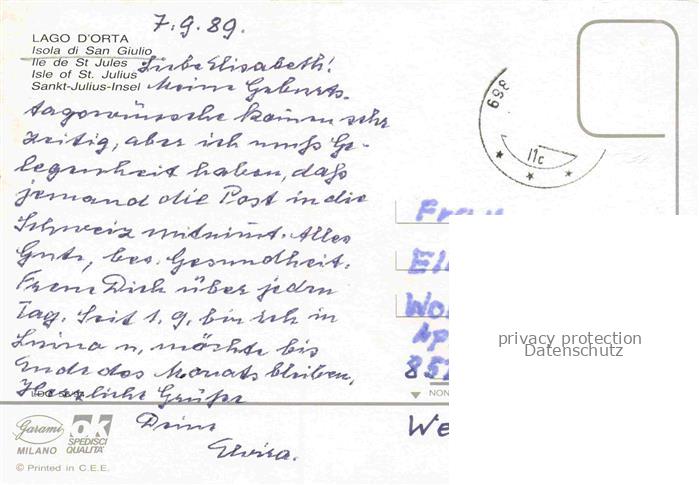 7.9.89.
LAGO D'ORTA
Isola di San Giulio
Ile de St Jules
Isle of St. Julius
Sankt-Julius-Insel
Liebe Elisabeth!
Meine Geburts-
tagswünsche kommen sehr
zeitig, aber ich muß Ge-
legenheit haben, daß
jemand die Post in die
Schweiz mitnimmt. Alles
Gute, bes. Gesundheit.
Freue Dich über jeden
Tag. Seit 1.9. bin ich in
Luina u. möchte bis
Ende des Monats bleiben.
Herzliche Grüße
Deine
Elvira.
Garami
MILANO
ok
SPEDISCI
QUALITA'
© Printed in C.E.E.
869
11c
Frau
Eli
Wo
Ap
857
NON
We
privacy protection
Datenschutz